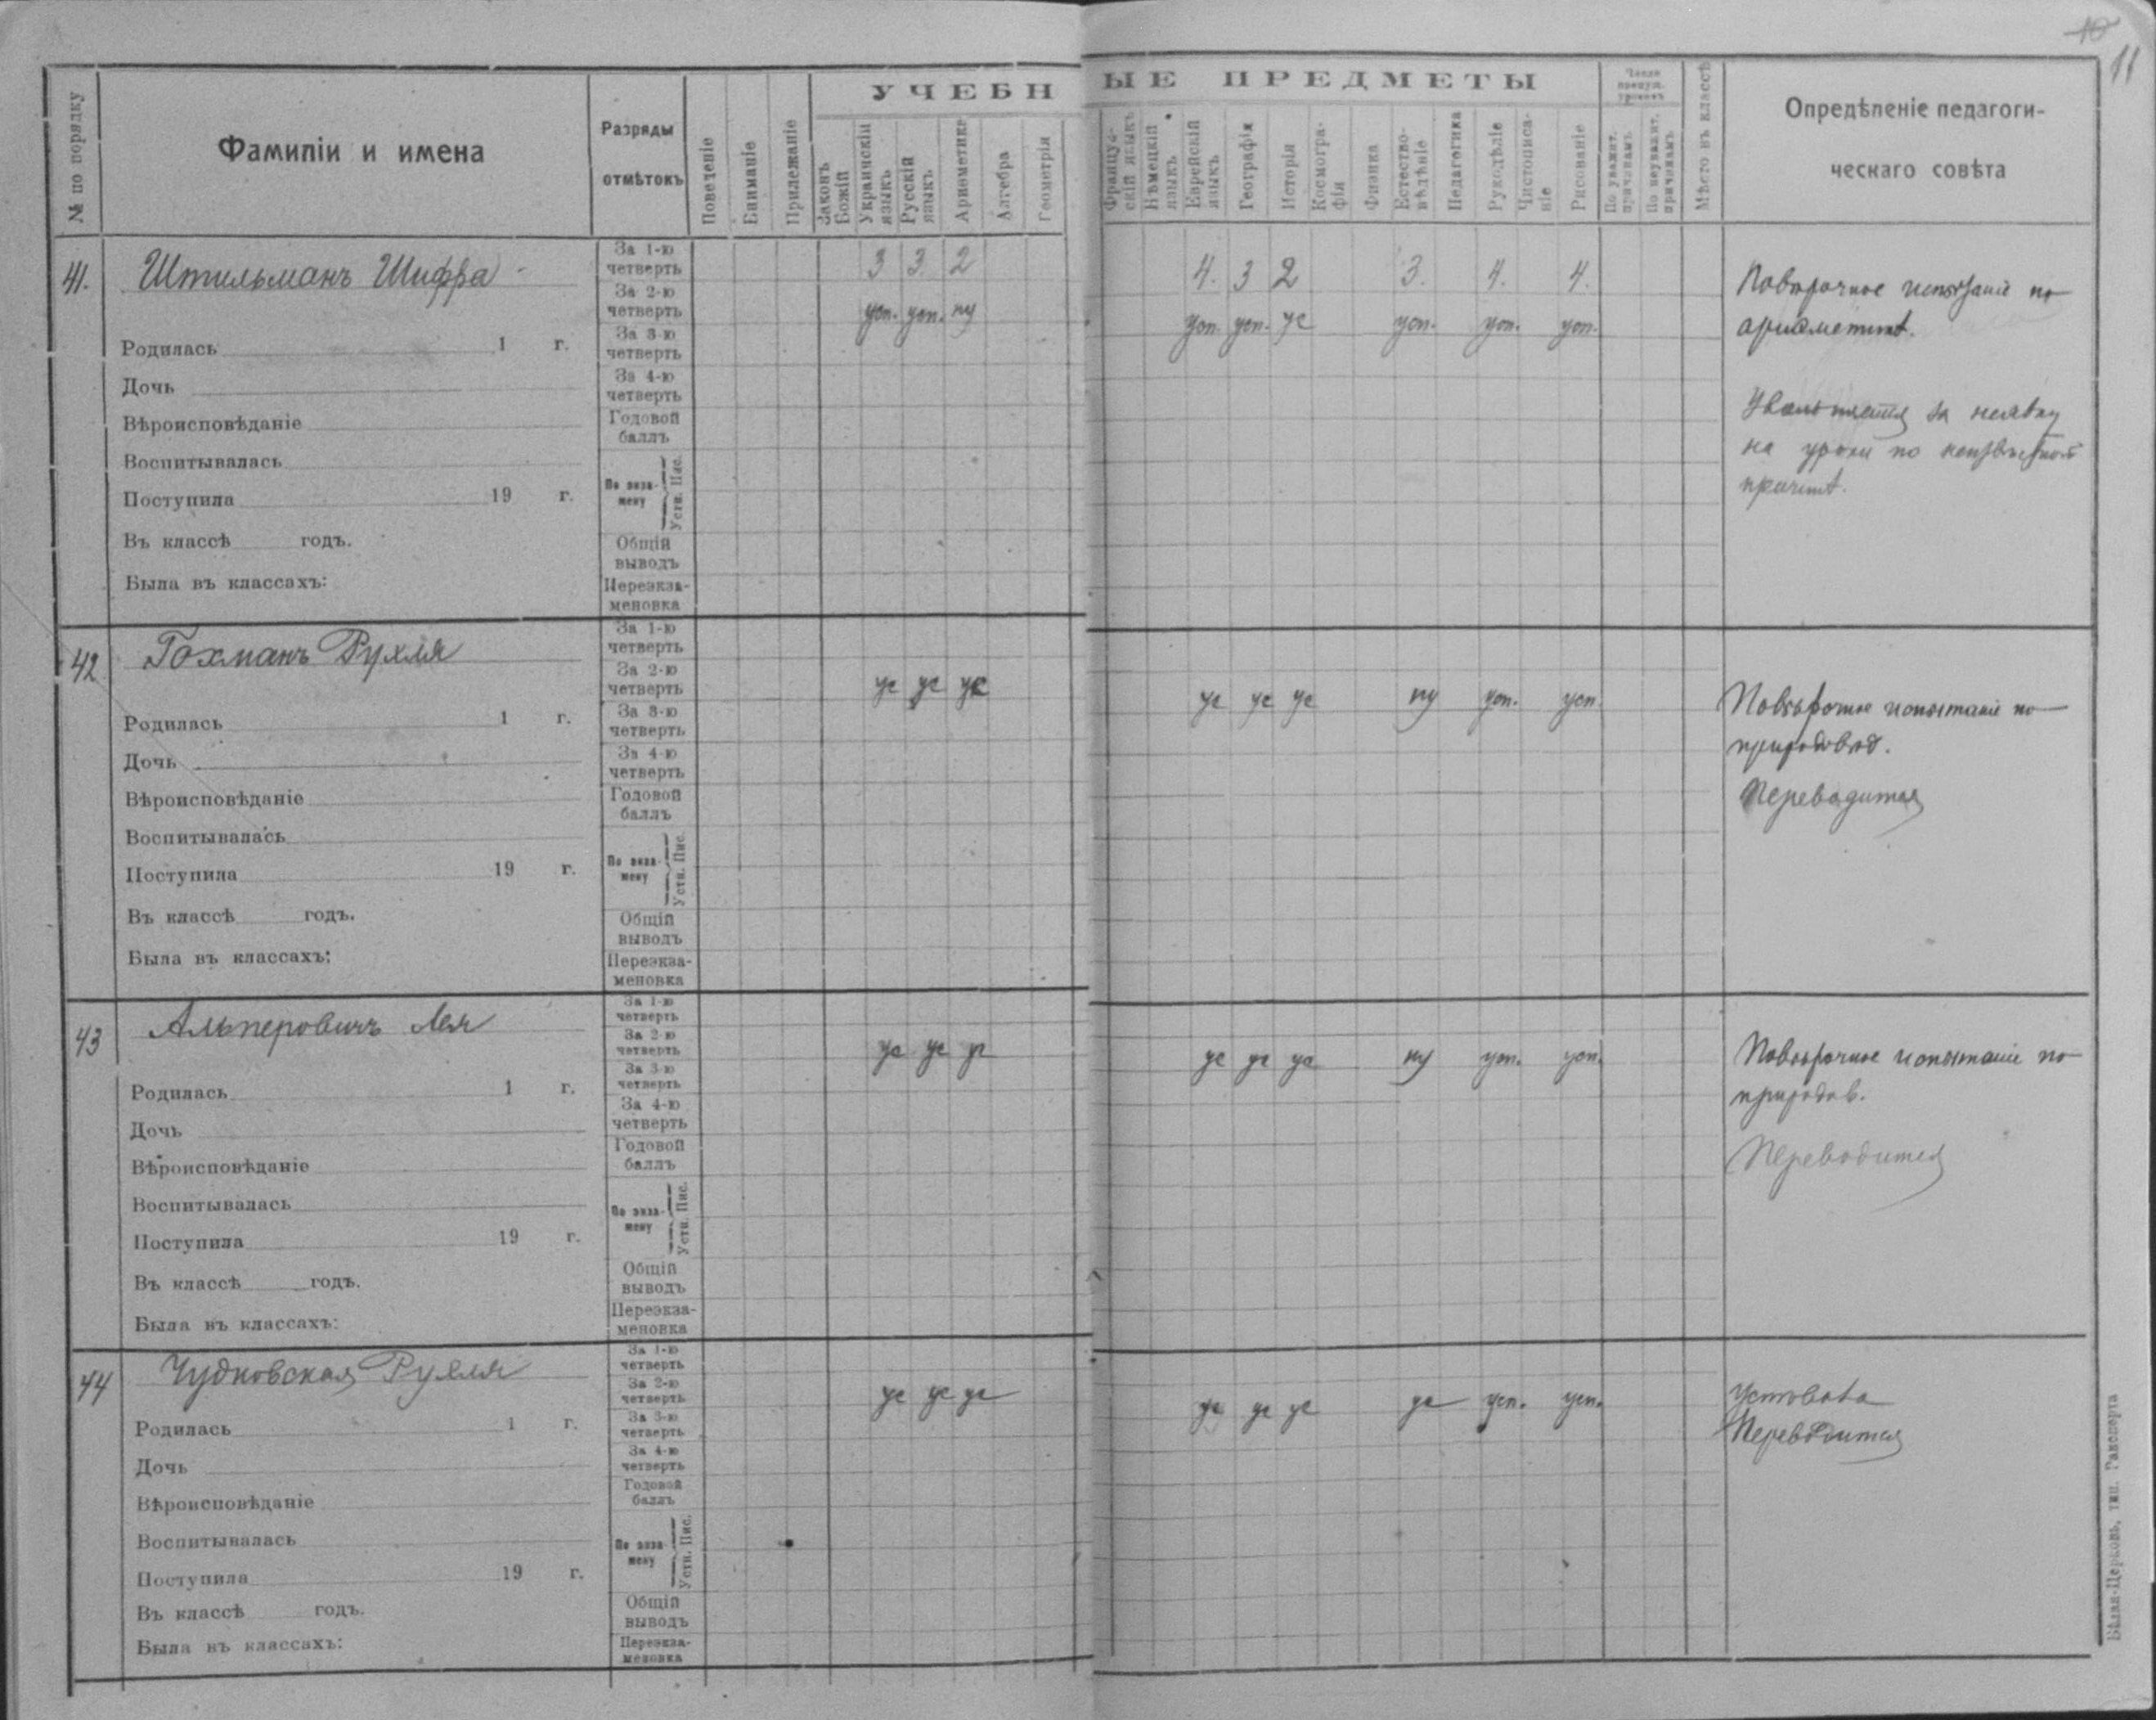 10
11
№ по порядку
Фамиліи и имена
Разряды
отмѣтокъ
Поведеніе
Вниманіе
Прилежаніе
УЧЕБНЫЕ ПРЕДМЕТЫ
Законъ Божій
Украинскій языкъ
Русскій языкъ
Ариѳметика
Алгебра
Геометрія
Француз-скій языкъ
Нѣмецкій языкъ
Еврейскій языкъ
Географія
Исторія
Космогра-фія
Физика
Естество-вѣдѣніе
Педагогика
Рукодѣліе
Чистописа-ніе
Рисованіе
Число пропущ. уроковъ
По уважит. причинамъ
По неуважит. причинамъ
Мѣсто въ классѣ
Опредѣленіе педагоги-
ческаго совѣта
41. Штильманъ Шифра
Родилась 1 г.
Дочь
Вѣроисповѣданіе
Воспитывалась
Поступила 19 г.
Въ классѣ годъ.
Была въ классахъ:
За 1-ю четверть 3 3 2 4. 3 2 3. 4. 4.
За 2-ю четверть усп. усп. ну усп. усп. ус усп. усп. усп.
За 3-ю четверть
За 4-ю четверть
Годовой баллъ
По экза-мену Устн. Пис.
Общій выводъ
Переэкза-меновка
Повѣрочное испытаніе по
ариѳметикѣ.
Увольняется за неявку
на уроки по неизвѣстной
причинѣ.
42 Гохманъ Рухля
Родилась 1 г.
Дочь
Вѣроисповѣданіе
Воспитывалась
Поступила 19 г.
Въ классѣ годъ.
Была въ классахъ:
За 1-ю четверть
За 2-ю четверть ус ус ус ус ус ус ну усп. усп.
За 3-ю четверть
За 4-ю четверть
Годовой баллъ
По экза-мену Устн. Пис.
Общій выводъ
Переэкза-меновка
Повѣрочное испытаніе по
природовѣд.
Переводится
43 Альперовичъ Лея
Родилась 1 г.
Дочь
Вѣроисповѣданіе
Воспитывалась
Поступила 19 г.
Въ классѣ годъ.
Была въ классахъ:
За 1-ю четверть
За 2-ю четверть ус ус ус ус ус ус ну усп. усп.
За 3-ю четверть
За 4-ю четверть
Годовой баллъ
По экза-мену Устн. Пис.
Общій выводъ
Переэкза-меновка
Повѣрочное испытаніе по
природов.
Переводится
44 Чудновская Рухля
Родилась 1 г.
Дочь
Вѣроисповѣданіе
Воспитывалась
Поступила 19 г.
Въ классѣ годъ.
Была въ классахъ:
За 1-ю четверть
За 2-ю четверть ус ус ус ус ус ус ус усп. усп.
За 3-ю четверть
За 4-ю четверть
Годовой баллъ
По экза-мену Устн. Пис.
Общій выводъ
Переэкза-меновка
Переводится
Бѣлая-Церковь, тип. Рапопорта